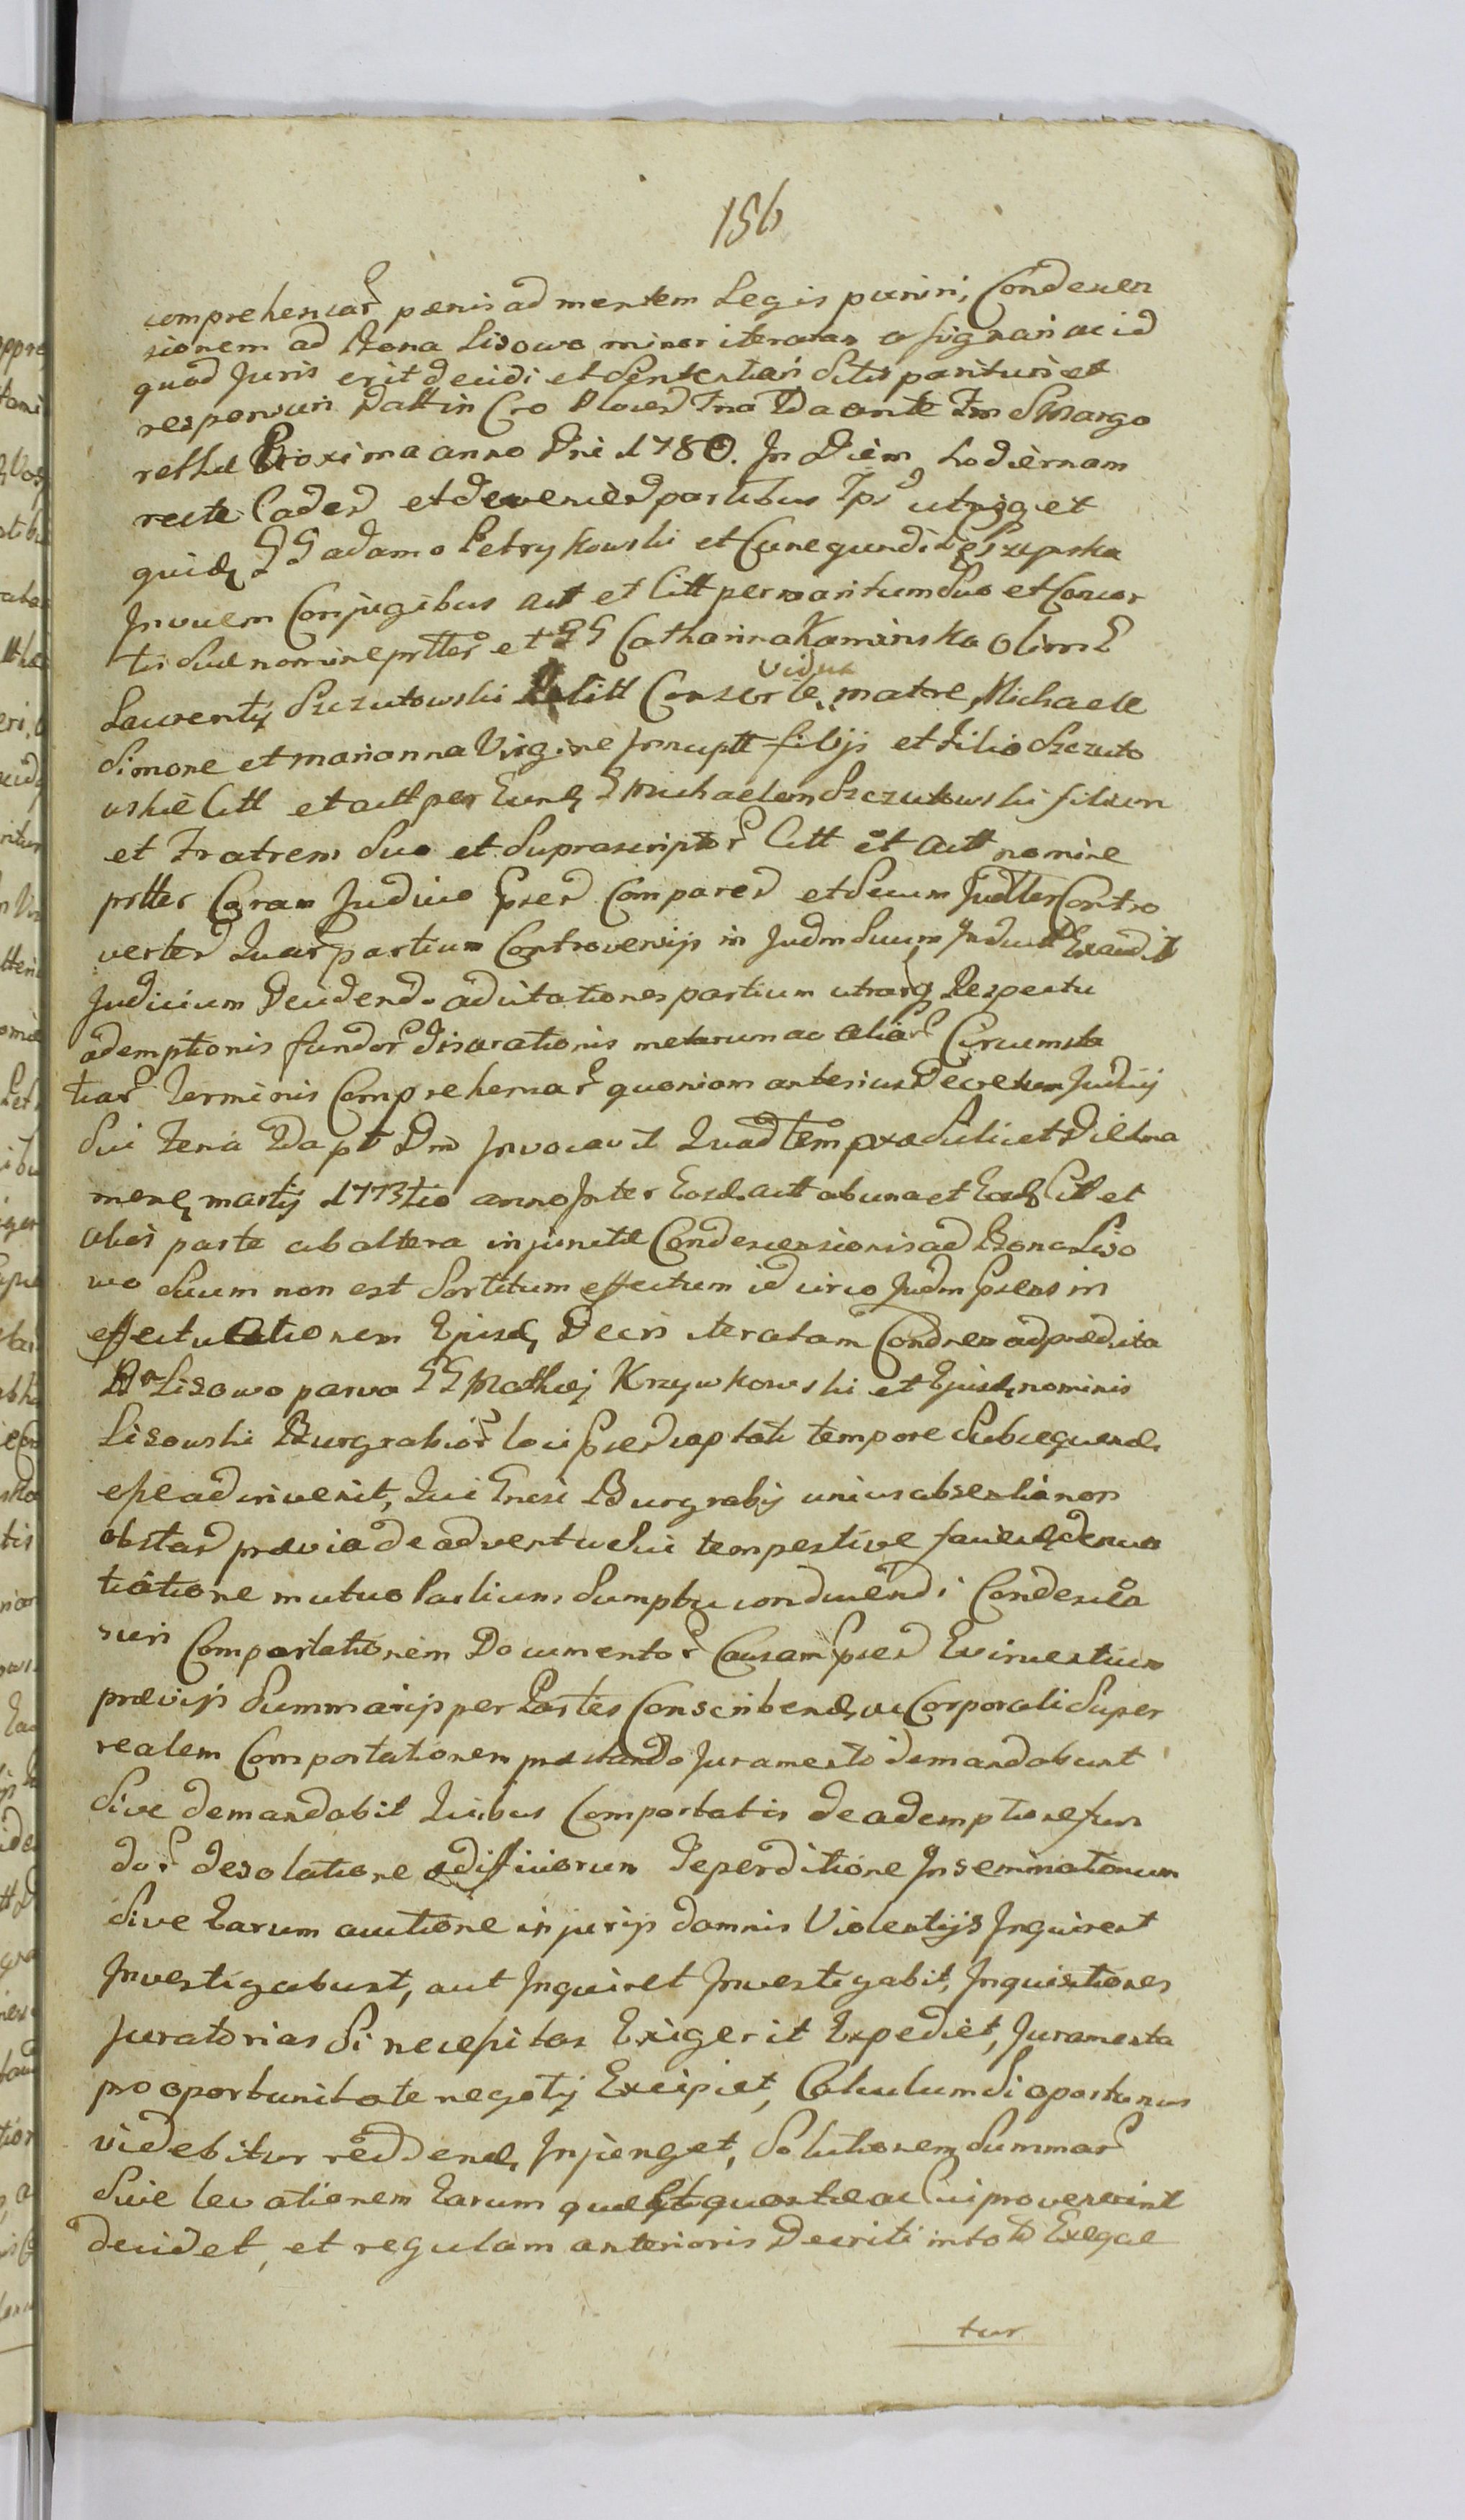 156
comprehensar pænis ad mentem Legis puniri, Condescen
sionem ad Bona Lisowo minor iteratam assignari ac id
quod Juris erit decidi et Sententiari Citts parituri et
responsuri Datt in Cro Plocen Fria 2da ante Fm S Marga
rethæ Proxima anno Dni 1780. In Diem hodiernam
recte Caden et devenien partibus Ips utrisq et
quidem GG adamo Petrykowski et Cunegundi de Szepska
Invicem Conjugibus Act et Citt per maritum Suo et Consor
tis Suæ nomine prtter et GG Catharina Kaminska olim G
Laurentij Szczutowski Relitt Consorte Vidua matre, Michaele
Simone et marianna Virgine Innuptt filijs et Filio Szczuto
wskie Citt et Actt per Eund G Michaelem Szczutowski filium
et Fratrem Suo et Suprascriptor Citt et Actt nomine
prtter Coram Judicio Præd Comparen et Secum Judtter Contro
verten Quar partium Controversijs in Judm Suum Induct Exaudit
Judicium Decidendo ad citationes partium utrarq Respectu
ademptionis fundor Disarationis metarum ac aliar Circumsta
tiar Terminis Comprehensar quoniam anterius Decretum Judicij
Sui Feria 2da pt Dm Invocavit Quadtem pxa Scilicet Die 1ma
mens martij 1773tio anno Inter Eosd actt ab una et Eosd Citt et
alios parte ab altera injunctæ Condescensionis ad Bona Liso
wo Suum non est Sortitum effectum idcirco Judm Præns in
effectuationem Ejusd Decri iteratam Condnem ad prædicta
Bna Lisowo parva GG Mathej Krzywkowski et Ejusd nominis
Lisowski Burgrabior loci Præd captati tempore Subsequend
esse adinvenit, Qui Gnosi Burgrabij unius absentia non
obstan prævia de adventu Sui tempestive facienda denun
tiatione mutuo Partium Sumptu conducendi Condescen
suri Comportationem Documentor Causam Præd Evincentium
prævijs Summarijs per Partes Conscribend ac Corporali Super
realem Comportationem præstando Juramento demandabunt
Sive demandabit Quibus Comportatis de ademptione fun
dor desolatione ædificiorum deperditione Inseminationum
Sive Earum auctione injurijs damnis Violentijs Inquirent
Investigabunt, aut Inquiret Investigabit, Inquisitiones
Juratorias Si necessitas Exigerit Expediet, Juramenta
pro oportunitate negotij Excipiet, Calculum Si oportunus
videbitur reddend, Injunget, Solutionem Summar
Sive levationem Earum quæ Et quantæ ac Cui provenerint
decidet, et regulam anterioris Decreti in toto Exeque
tur